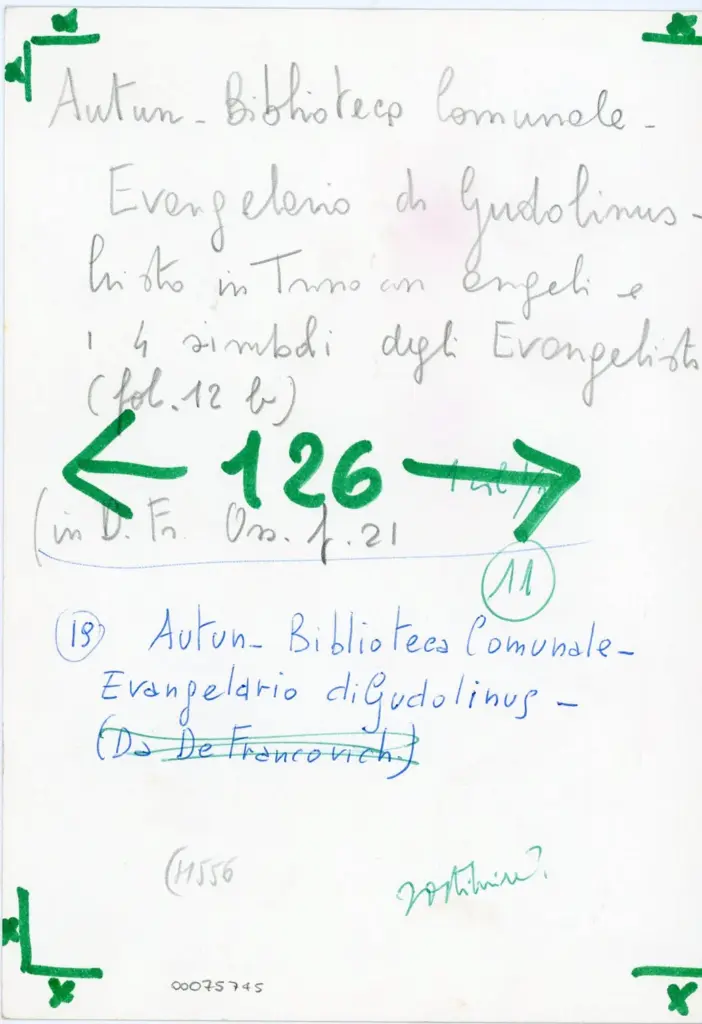 Autun - Biblioteca Comunale -
Evangelario di Gudolinus -
Cristo in Trono con angeli e
i 4 simboli degli Evangelisti
(fol. 12 b)
126
(in D. Fr. Oss. f. 21
11
19 Autun - Biblioteca Comunale -
Evangelario di Gudolinus -
(Da De Francovich)
(11556
sostituire?
00075745